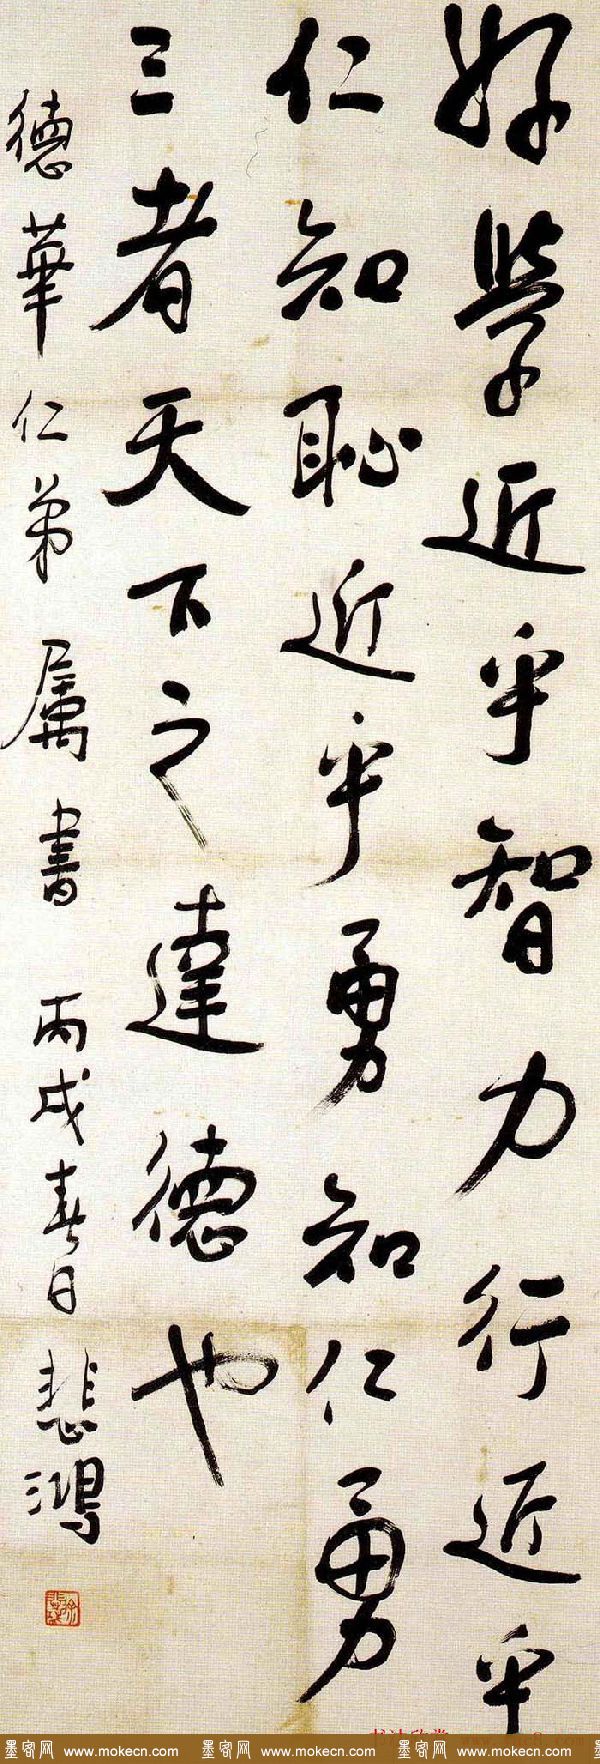 好學近乎智力行近乎
仁知恥近乎勇知仁勇
三者天下之達德也
德華仁弟属書 丙戌春日 悲鴻
墨客网 www.mokecn.com 墨客网 www.mokecn.com 墨客网 www.mokecn.com